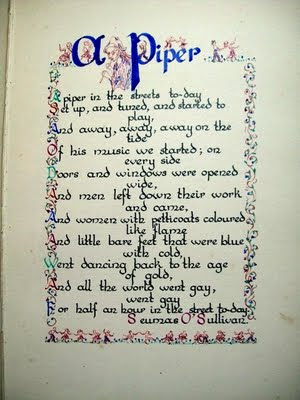 A Piper
A piper in the streets to-day
Set up, and tuned, and started to
play,
And away, away, away on the
tide
Of his music we started; on
every side
Doors and windows were opened
wide,
And men left down their work
and came,
And women with petticoats coloured
like flame
And little bare feet that were blue
with cold,
Went dancing back to the age
of gold,
And all the world went gay,
went gay
For half an hour in the street to-day.
Seumas O'Sullivan.